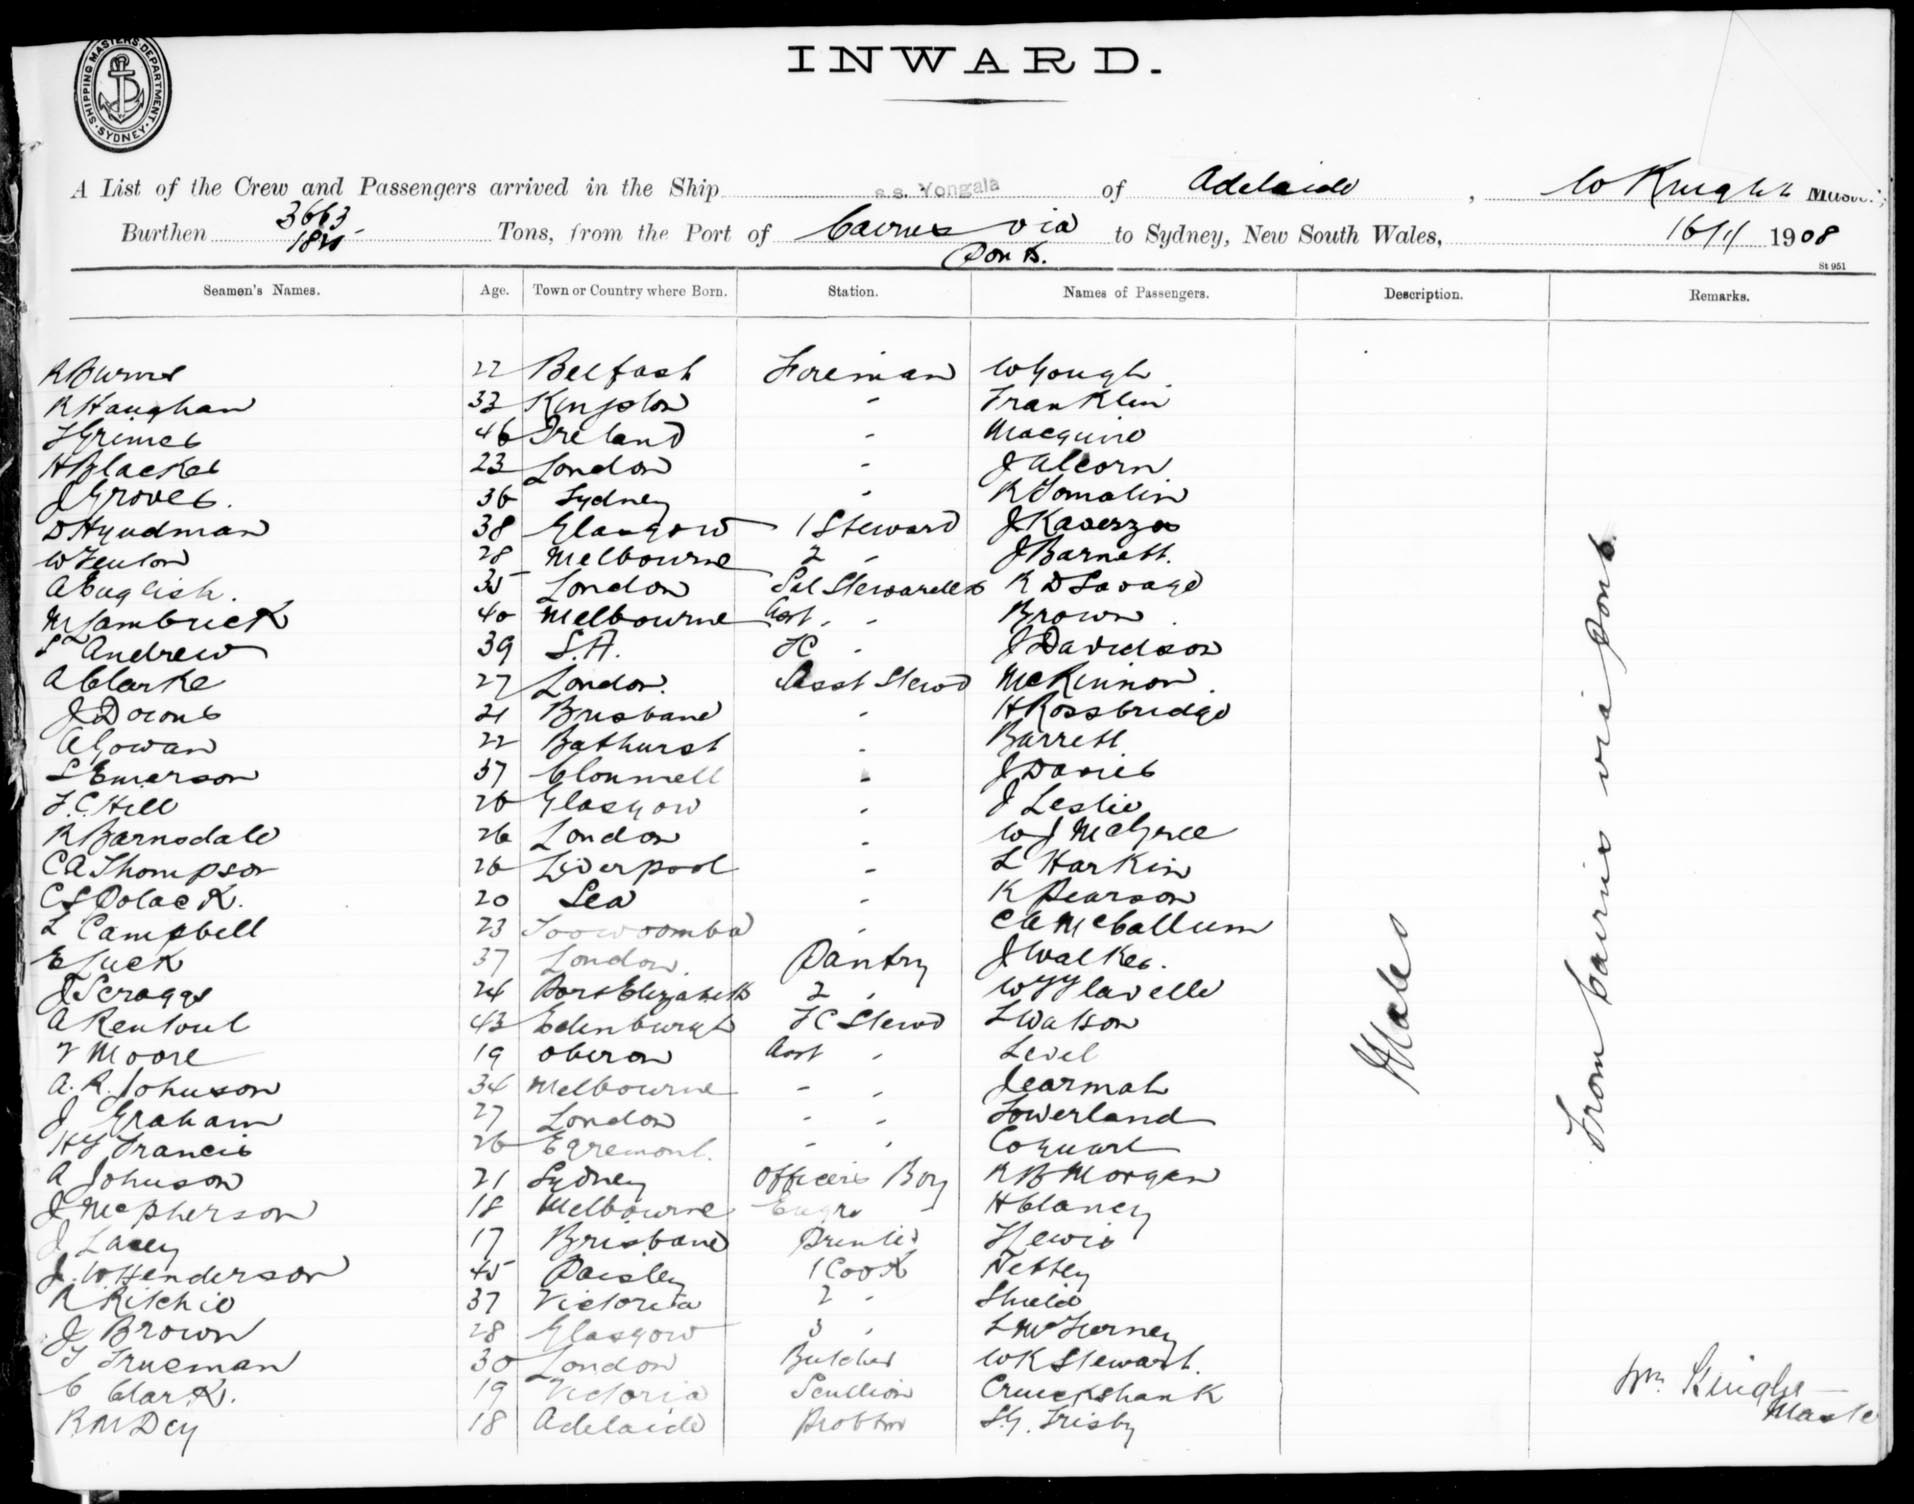 SHIPPING MASTERS DEPARTMENT. SYDNEY.
INWARD.
A List of the Crew and Passengers arrived in the Ship s.s. Yongala of Adelaide, W Knight Master,
Burthen 3663 Tons, from the Port of Cairns via to Sydney, New South Wales, 16/11 1908
Ports.
St 951
Seamen's Names. Age. Town or Country where Born. Station. Names of Passengers. Description. Remarks.
R Burns 22 Belfast Foreman W Gough
R Haughan 33 Kingston " Franklin
J Grimes 46 Ireland " Macquire
H Blackes 23 London " J Alcorn
J Groves. 36 Sydney " R Tomalin
D Hyndman 38 Glasgow 1 Steward
W Fenton 28 Melbourne 2 " J Barnett.
A English. 35 London Sal Stewardess R D Savage
M Lambrick 40 Melbourne Asst " " Brown
S Andrew 39 S.A. FC " J Davidson
A Clarke 27 London. Asst Stewd McKinnon.
J Downs 21 Brisbane " H Rossbridge
A Gowan 22 Bathurst " Barrett
S Emerson 37 Clonmell " J Davies
F.C. Hill 26 Glasgow " J Leslie
R Barnsdale 26 London " W J McGree
C A Thompson 26 Liverpool " L Harkin
C S Polack. 20 Sea " K Pearson
L Campbell 23 Toowoomba " C A McCallum
E Luck 37 London. Pantry J Walker.
J Scraggs 24 Port Elizabeth 2 " W J Flavelle
A Rentoul 43 Edinburgh FC Stewd L Watson
F Moore 19 Oberon Asst " Level
A. R. Johnson 34 Melbourne " " Jearmah
J Graham 27 London " " Sowerland
H J Francis 26 Egremont. " " Coquart
A Johnson 21 Sydney Officers Boy R B Morgan
J McPherson 18 Melbourne Engrs " H Clancy
J Lacey 17 Brisbane Printer Hewis
J. W. Henderson 45 Paisley 1 Cook Nettey
R Ritchie 37 Victoria 2 " Shield
J Brown 28 Glasgow 3 "
F Trueman 30 London Butcher W K Stewart.
C Clark. 19 Victoria Scullion Cruickshank
R M Dey 18 Adelaide S.G. Frisby
Males
From Cairns via Ports.
Wm. Knight
Master